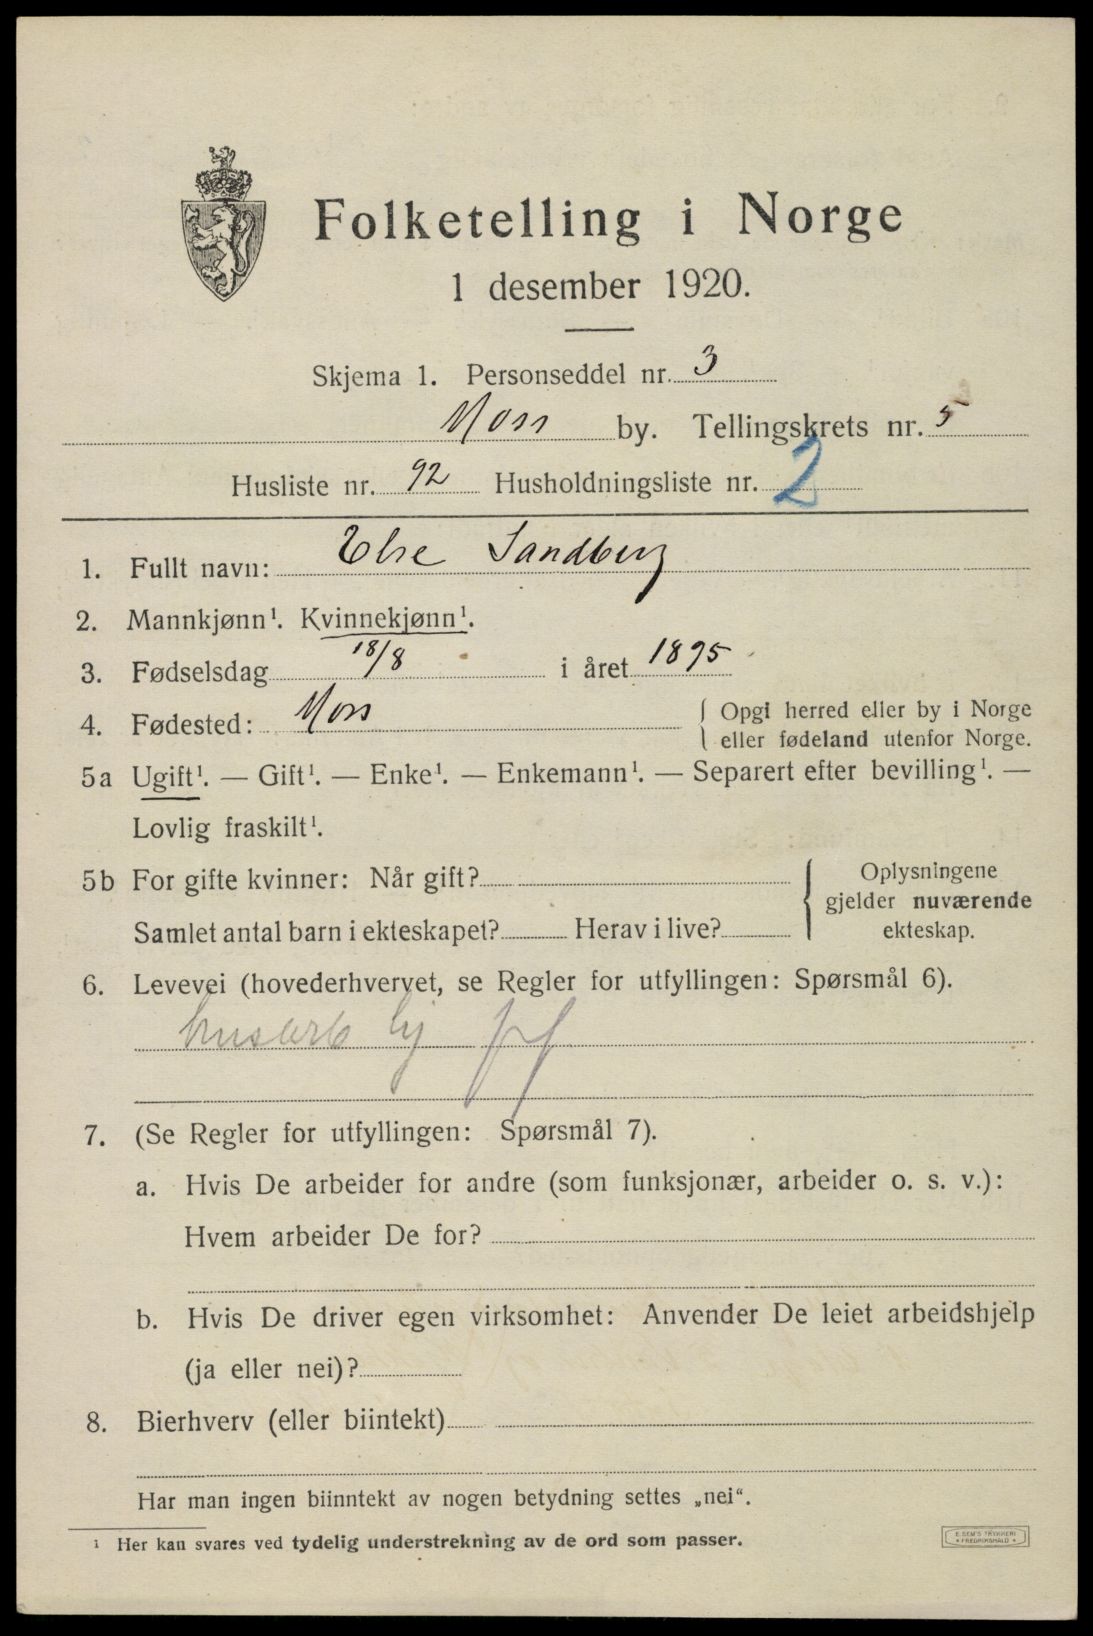 Folketelling i Norge
1 desember 1920.
Skjema 1. Personseddel nr. 3
Moss by. Tellingskrets nr. 5
Husliste nr. 92 Husholdningsliste nr. 2
1. Fullt navn: Else Sandberg
2. Mannkjønn¹. Kvinnekjønn¹.
3. Fødselsdag 18/8 i året 1895
4. Fødested: Moss { Opgi herred eller by i Norge
eller fødeland utenfor Norge.
5a Ugift¹. — Gift¹. — Enke¹. — Enkemann¹. — Separert efter bevilling¹. —
Lovlig fraskilt¹.
5b For gifte kvinner: Når gift? } Oplysningene
gjelder nuværende
Samlet antal barn i ekteskapet? Herav i live? ekteskap.
6. Levevei (hovederhvervet, se Regler for utfyllingen: Spørsmål 6).
husarb hj
7. (Se Regler for utfyllingen: Spørsmål 7).
a. Hvis De arbeider for andre (som funksjonær, arbeider o. s. v.):
Hvem arbeider De for?
b. Hvis De driver egen virksomhet: Anvender De leiet arbeidshjelp
(ja eller nei)?
8. Bierhverv (eller biintekt)
Har man ingen biinntekt av nogen betydning settes „nei“.
¹ Her kan svares ved tydelig understrekning av de ord som passer.
E. SEM'S TRYKKERI
• FREDRIKSHALD •